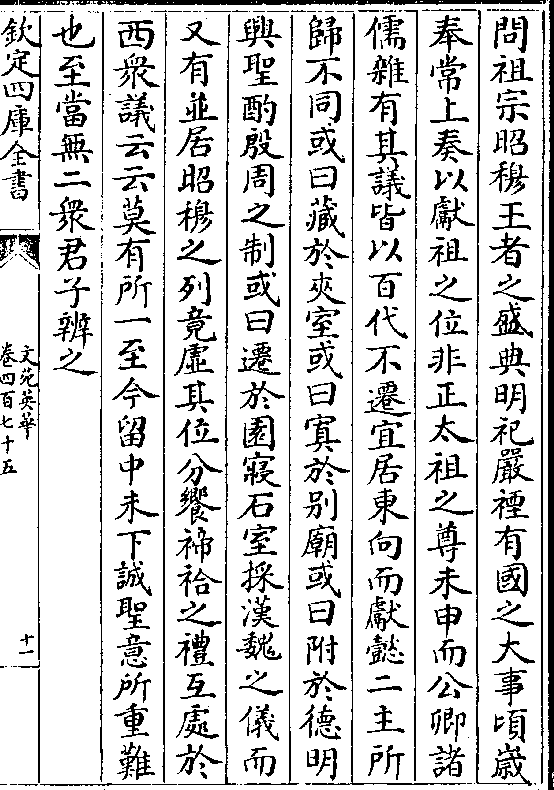 問祖宗昭穆王者之盛典明祀嚴禋有國之大事頃嵗
奉常上奏以獻祖之位非正太祖之尊未申而公卿諸
儒雜有其議皆以百代不遷宜居東向而獻懿二主所
歸不同或曰藏於夾室或曰寘於别廟或曰附於德明
興聖酌殷周之制或曰遷於園寢石室採漢魏之儀而
又有並居昭穆之列竟虛其位分饗禘祫之禮互處於
西衆議云云莫有所一至今留中未下誠聖意所重難
也至當無二衆君子辨之
欽定四庫全書
文苑英華
卷四百七十五
十一